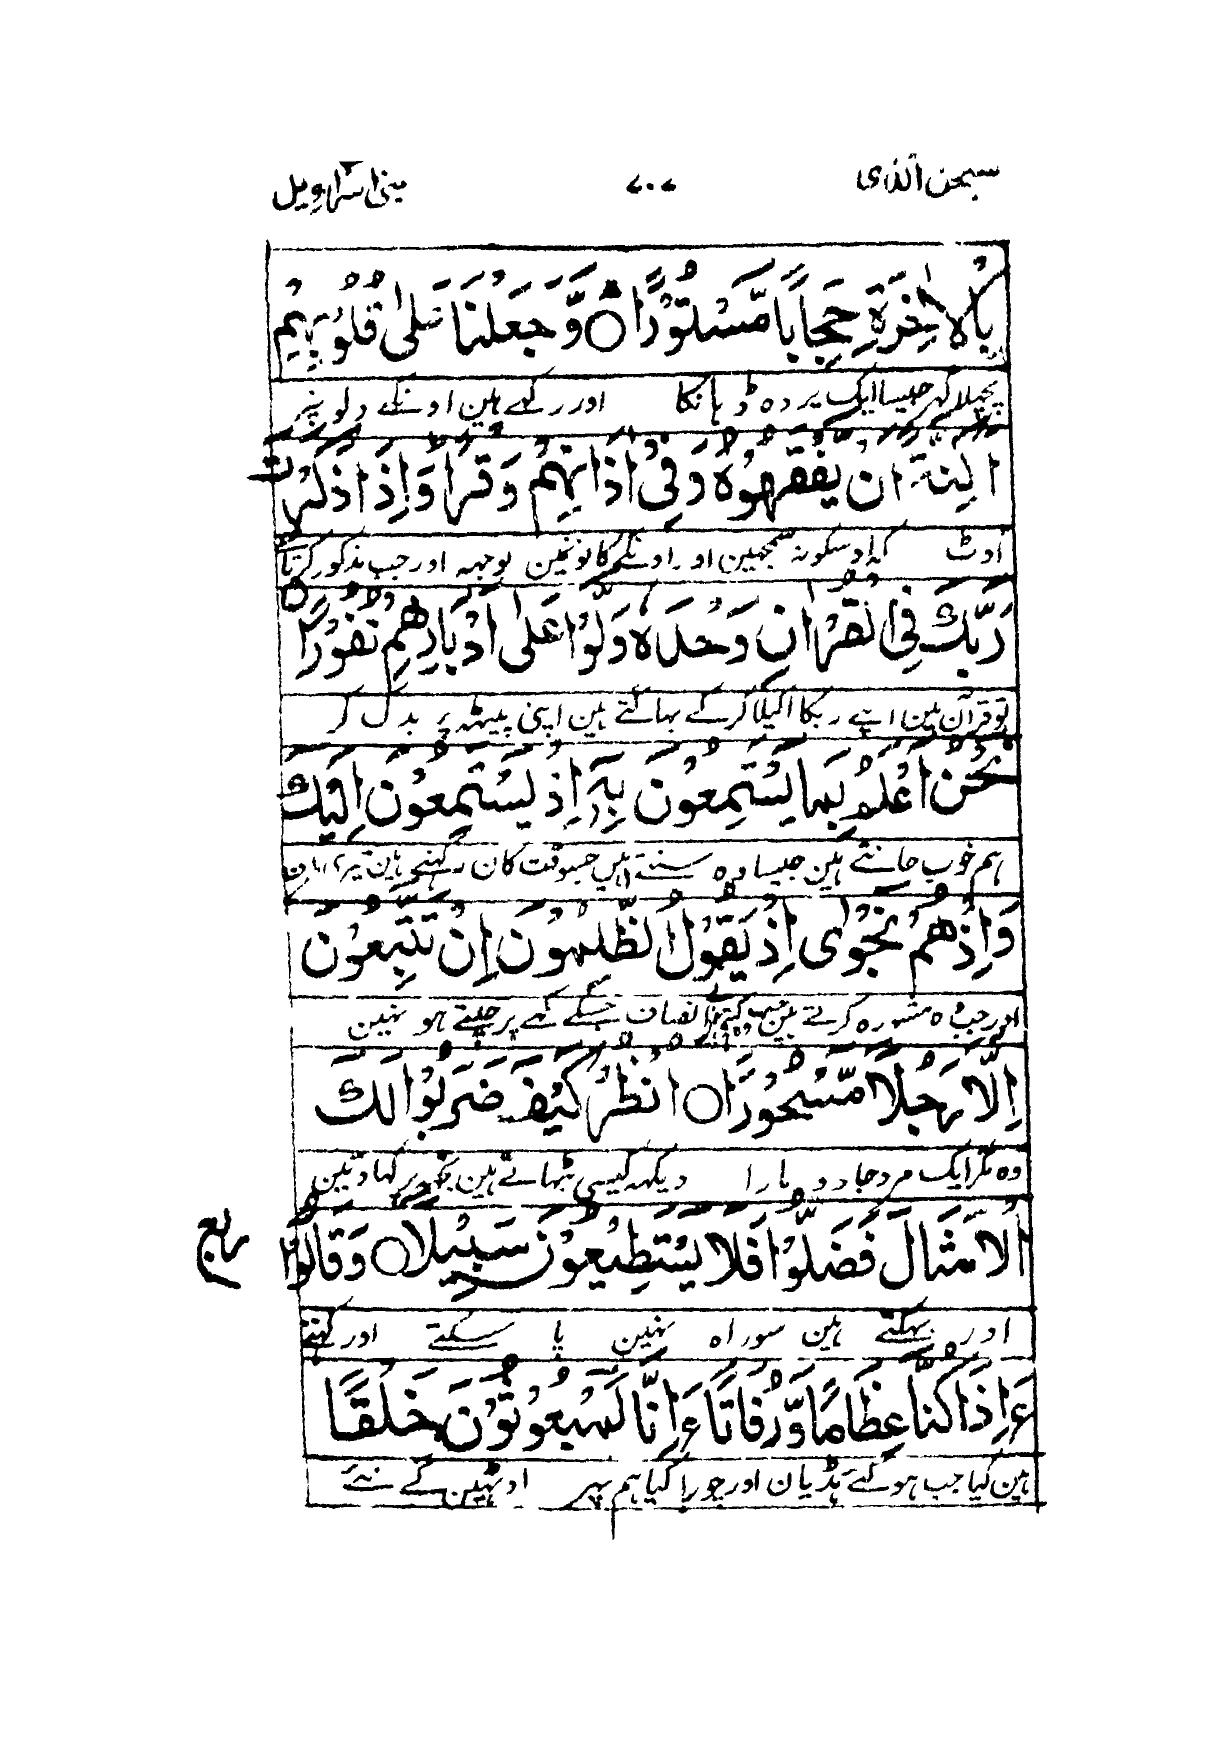 سبحن الذی ۷۰۷ بنی اسراویل
بِالْاٰخِرَةِ حِجَابًا مَّسْتُوْرًا ۝ وَّجَعَلْنَا عَلٰی قُلُوْبِهِمْ
پچھلا کہر جیسا ایک پردہ ڈہانکا اور رکھے ہین اونکے دلونپر
اَکِنَّةً اَنْ یَّفْقَهُوْهُ وَفِیْ اٰذَانِهِمْ وَقْرًا وَاِذَا ذَکَرْتَ
اوٹ کہ اوسکو نہ سمجہین اور اونکے کانونمین بوجہہ اور جب مذکور کرتا
رَبَّكَ فِی الْقُرْاٰنِ وَحْدَهٗ وَلَّوْا عَلٰی اَدْبَارِهِمْ نُفُوْرًا ۝
تو قرآن مین اپنے ربکا اکیلا کر کے بہاگتے ہین اپنی پیٹہہ پر بدل کر
نَحْنُ اَعْلَمُ بِمَا یَسْتَمِعُوْنَ بِهٖ اِذْ یَسْتَمِعُوْنَ اِلَیْكَ
ہم خوب جانتے ہین جیسا وہ سنتے ہین جسوقت کان رکہتے ہین تیری
وَاِذْ هُمْ نَجْوٰی اِذْ یَقُوْلُ الظّٰلِمُوْنَ اِنْ تَتَّبِعُوْنَ
اور جب وہ مشورہ کرتے ہین جب کہتے بے انصاف جسکے کہے پر چلتے ہو نہین
اِلَّا رَجُلًا مَّسْحُوْرًا ۝ اُنْظُرْ کَیْفَ ضَرَبُوْا لَكَ
وہ مگر ایک مرد جادو مارا دیکہہ کیسی بٹہاتے ہین تجہہ پر کہاوتین
الْاَمْثَالَ فَضَلُّوْا فَلَا یَسْتَطِیْعُوْنَ سَبِیْلًا ۝ وَقَالُوْا
ربع
اور بہکتے ہین سو راہ نہین پا سکتے اور کہتے
ءَاِذَا کُنَّا عِظَامًا وَّرُفَاتًا ءَاِنَّا لَمَبْعُوْثُوْنَ خَلْقًا
ہین کیا جب ہو گئے ہڈیان اور چورا کیا ہم پہر اوٹہین کے نئے